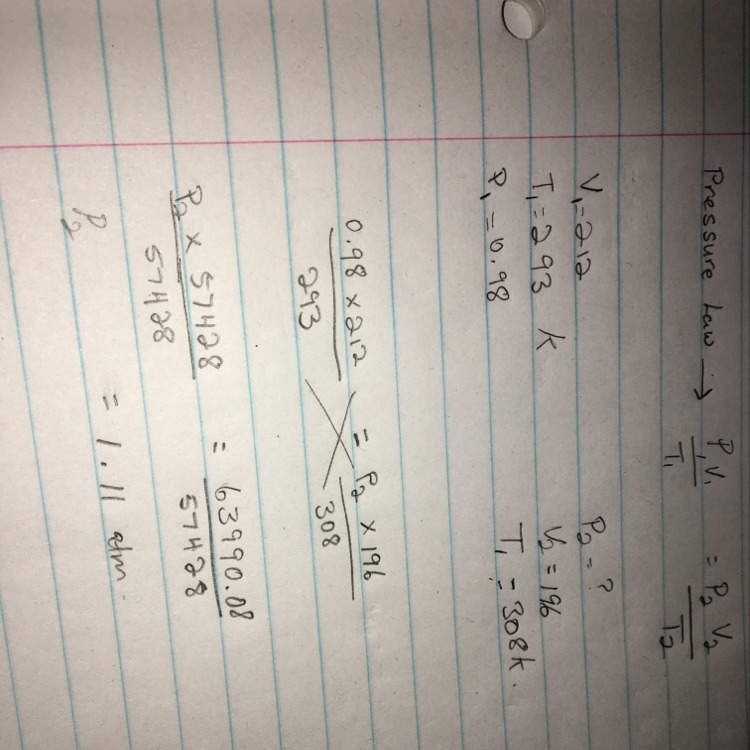 Pressure Law → P₁V₁/T₁ = P₂V₂/T₂
V₁=212 P₂=?
T₁=293 k V₂=196
P₁=0.98 T₁=308k.
0.98×212/293 = P₂×196/308
P₂×57428/57428 = 63990.08/57428
P₂ = 1.11 atm.